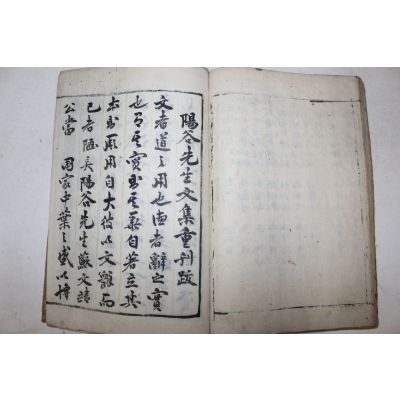 陽谷先生文集重刊跋
文者道之用也德者辭之實
也有其實則其華自著立其
本則厥用自大彼以文辭而
已者陋矣陽谷先生蘇文靖
公當 國家中葉之盛以